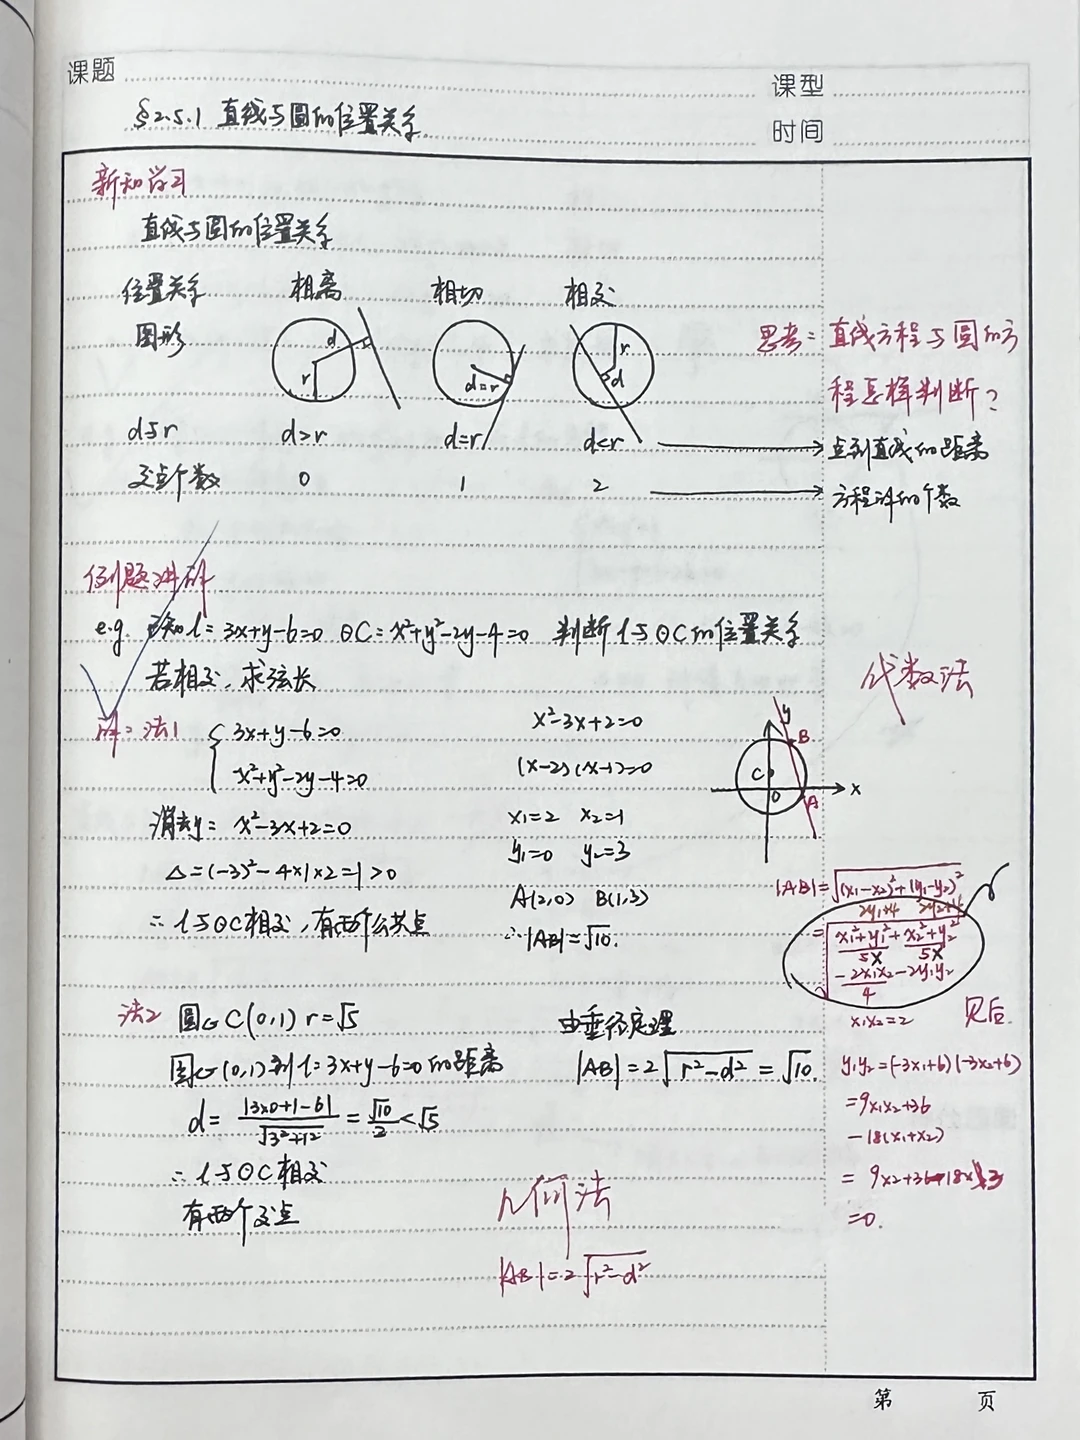 课题
课型
§2.5.1 直线与圆的位置关系
时间
新知学习
直线与圆的位置关系
位置关系 相离 相切 相交
图形
d r
d=r
r d
思考: 直线方程与圆的方
程怎样判断?
d与r d>r d=r d<r → 点到直线的距离
交点个数 0 1 2 → 方程解的个数
例题讲解
e.g. 已知l: 3x+y-6=0 ⊙C: x²+y²-2y-4=0 判断l与⊙C的位置关系
若相交, 求弦长
代数法
解: 法1 { 3x+y-6=0
x²+y²-2y-4=0
消去y: x²-3x+2=0
Δ=(-3)²-4×1×2=1>0
∴ l与⊙C相交, 有两个公共点
x²-3x+2=0
(x-2)(x-1)=0
x₁=2 x₂=1
y₁=0 y₂=3
A(2,0) B(1,3)
∴|AB|=√10.
y
B
C
O
A
x
|AB|=√(x₁-x₂)²+(y₁-y₂)²
2y₁+4 2y₂+4
=√x₁²+y₁²+x₂²+y₂²
5x 5x
-2x₁x₂-2y₁y₂
4
x₁x₂=2
见后.
y₁y₂=(-3x₁+6)(-3x₂+6)
=9x₁x₂+36
-18(x₁+x₂)
= 9×2+36-18×3
=0.
法2 圆心C(0,1) r=√5
圆心(0,1)到l: 3x+y-6=0的距离
d= |3×0+1-6| / √3²+1² = √10/2 <√5
∴ l与⊙C相交
有两个交点
由垂径定理
|AB|=2√r²-d² =√10.
几何法
|AB|=2√r²-d²
第 页